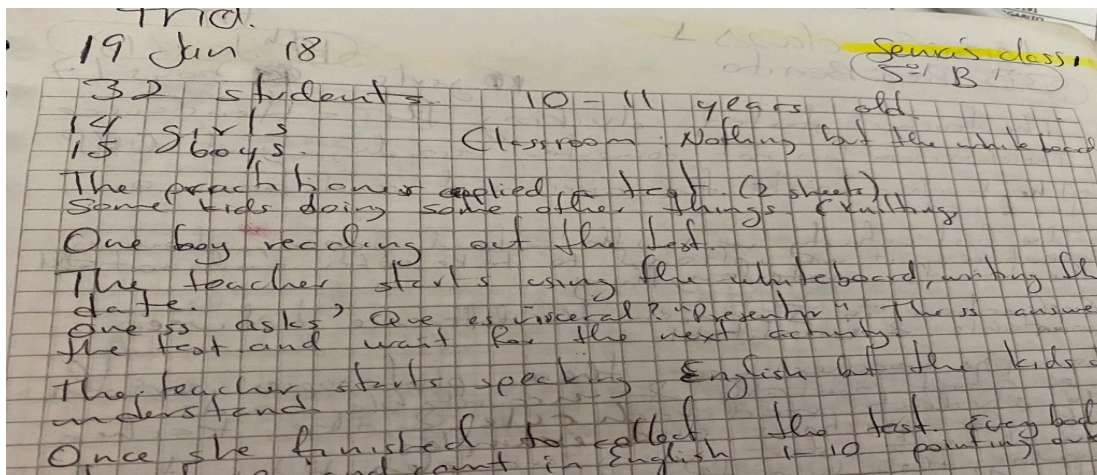 19 Jan 18
Senia's class,
5º1 B
32 students 10-11 years old.
14 girls
15 boys. Classroom: Nothing but the whiteboard
The applied a test. (2 sheets)
Some kids doing some other things
One boy reading out the test.
The teacher starts using the whiteboard, writing the
date.
One ss asks "Que es visceral? "Presentar" The ss answer
the test and want for the next activity.
The teacher starts speaking English but the kids
understand.
Once she finished to collect the test. Everybody
and count in English 1-10 pointing out